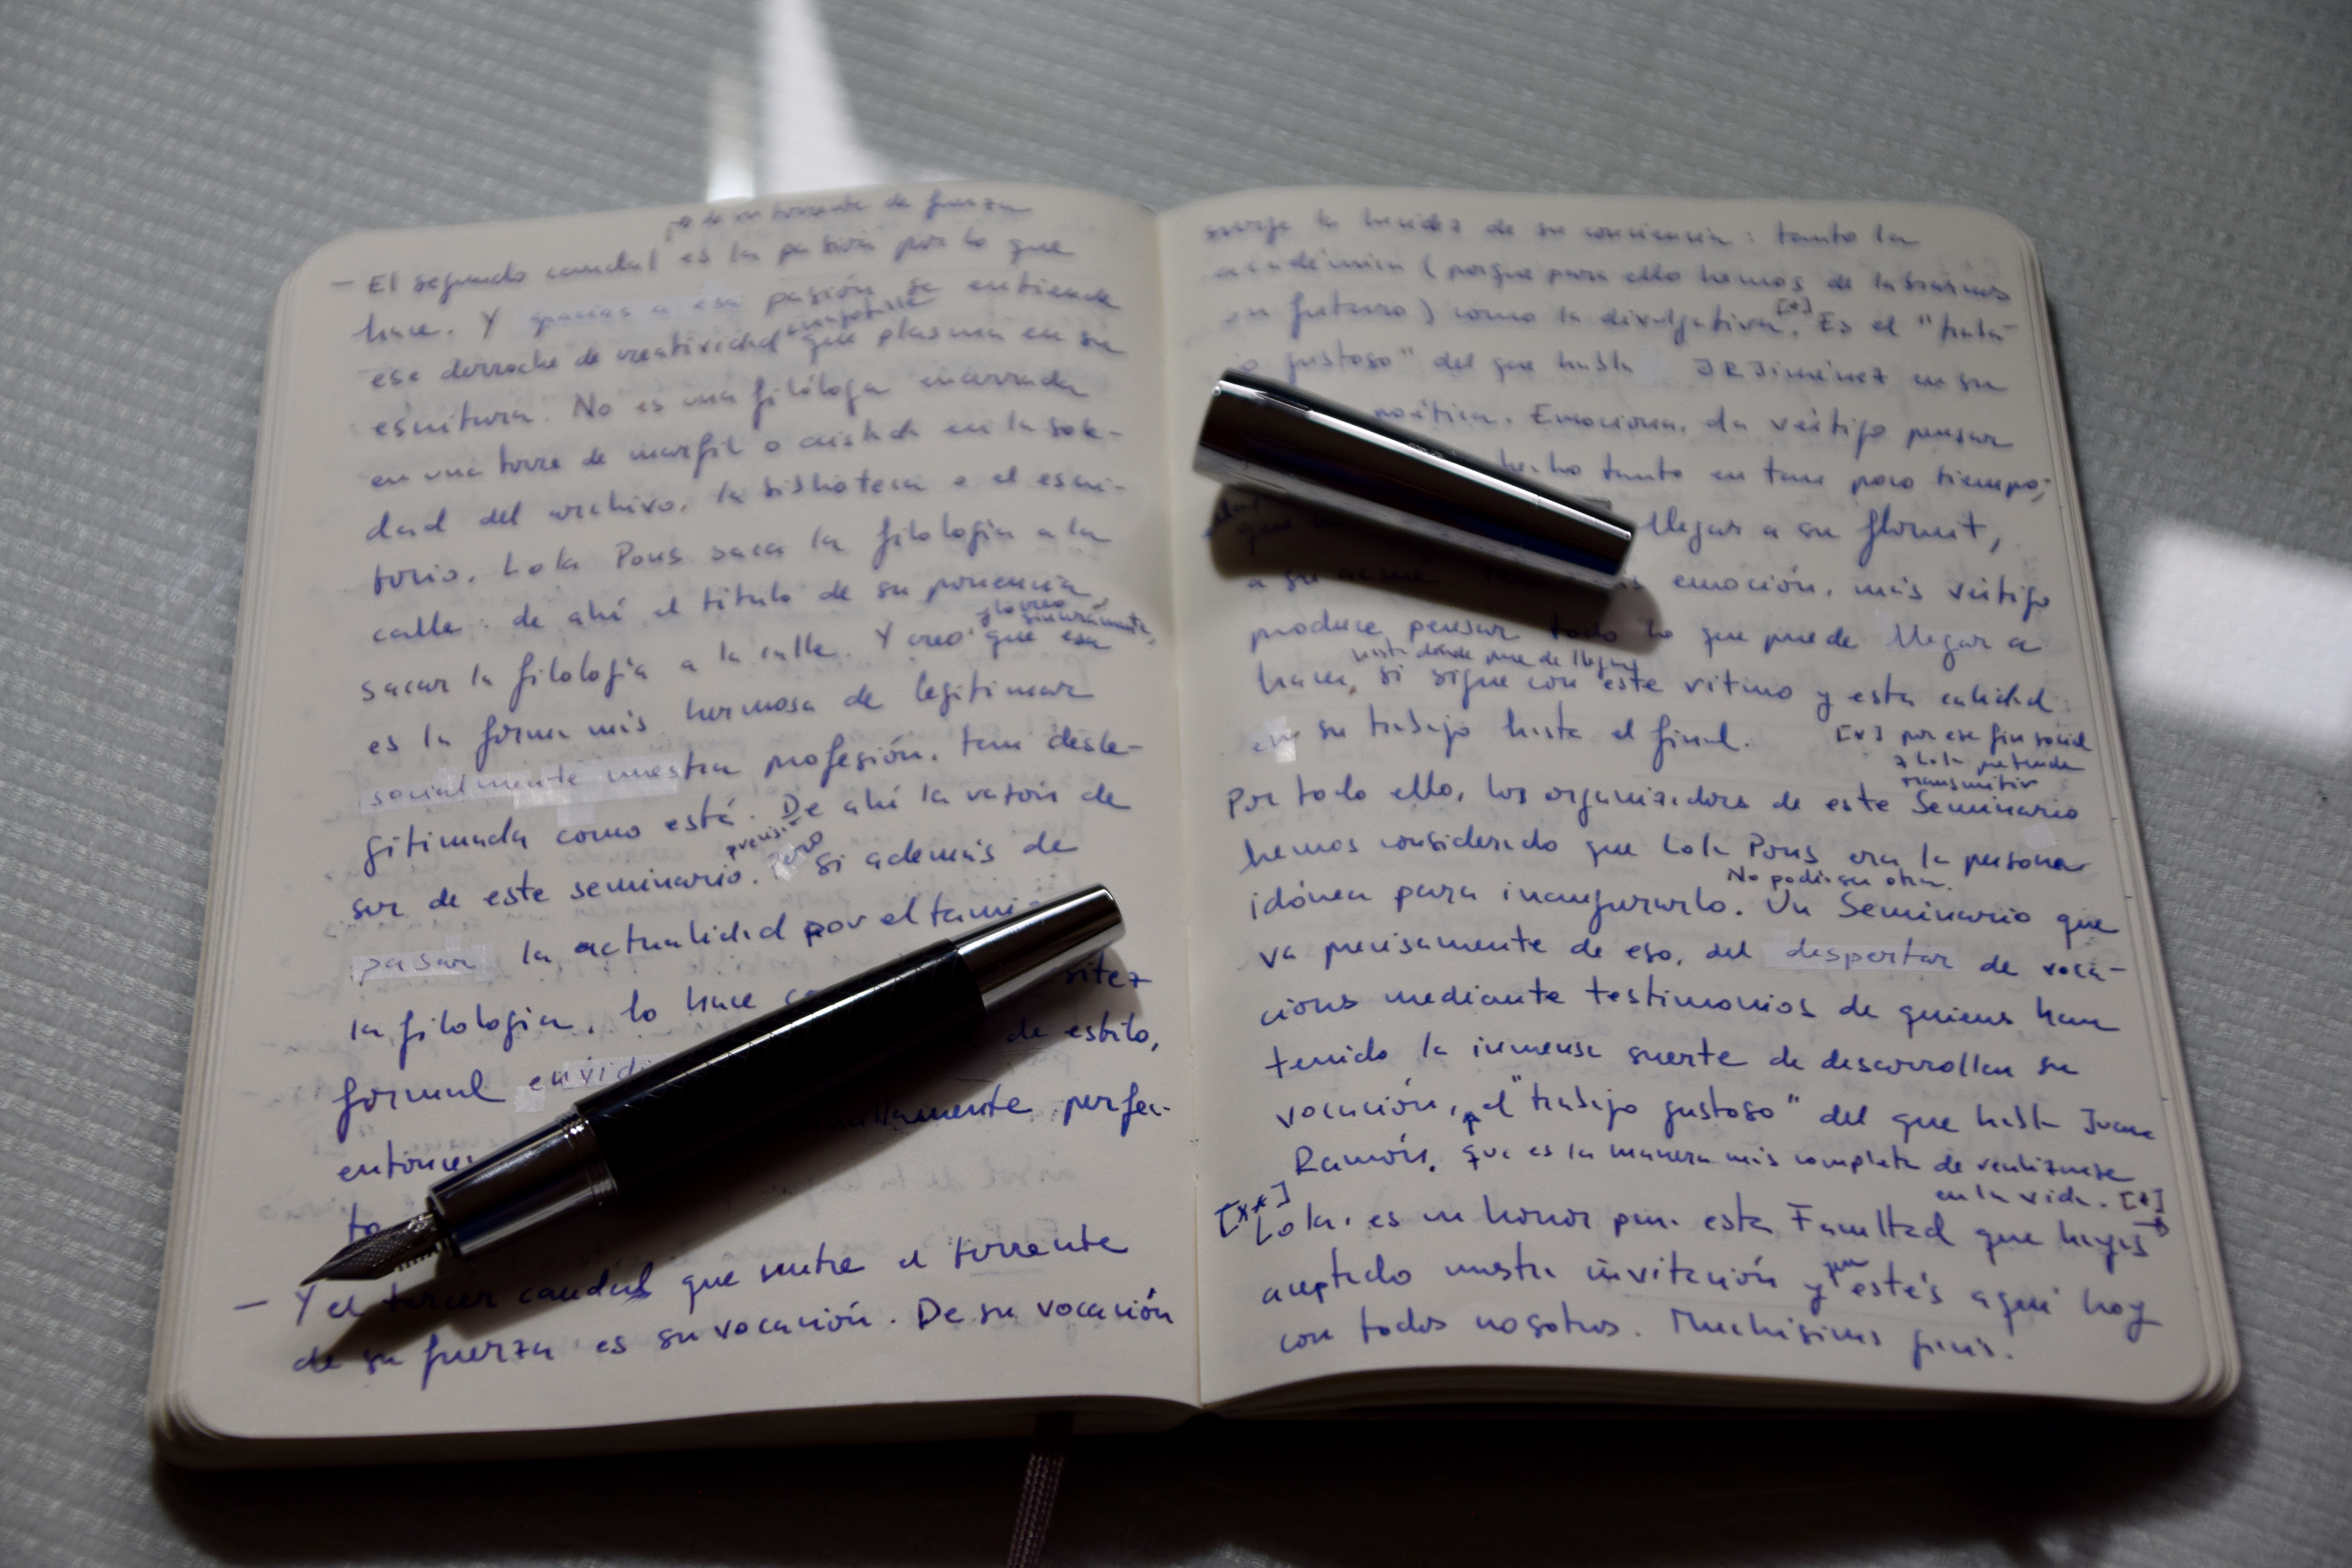 de su torrente de fuerza
— El segundo caudal es la pasión por lo que
hace. Y gracias a esa pasión se entiende
ese derroche de creatividad que plasma en su
escritura. No es una filóloga encerrada
en una torre de marfil o aislada en la sole-
dad del archivo, la biblioteca o el escri-
torio. Lola Pons saca la filología a la
calle: de ahí el título de su ponencia,
sacar la filología a la calle. Y creo que esa
y lo creo sinceramente,
es la forma más hermosa de legitimar
socialmente nuestra profesión, tan desle-
gitimada como está. De ahí la razón de
ser de este seminario. Pero si además de
pasar la actualidad por el tami
la filología, lo hace
sitez
formal
de estilo,
entonces
perfec-
ta
— Y el tercer caudal que nutre el torrente
de su fuerza es su vocación. De su vocación
surge la lucidez de su conciencia: tanto la
académica (porque para ello hemos de labrarnos
un futuro) como la divulgativa [*]. Es el "traba-
jo gustoso" del que habla JRJiménez en su
poética. Emociona, da vértigo pensar
hecho tanto en tan poco tiempo;
llegar a su floruit,
a su acmé emoción, más vértigo
produce pensar todo lo que puede llegar a
hasta dónde puede llegar
hacer, si sigue con este ritmo y esta calidad
en su trabajo hasta el final.
[*] por ese fin social
q Lola pretende
transmitir
Por todo ello, los organizadores de este Seminario
hemos considerado que Lola Pons era la persona
idónea para inaugurarlo. No podía ser otra. Un Seminario que
va precisamente de eso, del despertar de voca-
ciones mediante testimonios de quienes han
tenido la inmensa suerte de desarrollar su
vocación, el "trabajo gustoso" del que habla Juan
Ramón, que es la manera más completa de realizarse
en la vida. [*]
[**]
Lola, es un honor para esta Facultad que hayas
aceptado nuestra invitación y que estés aquí hoy
con todos nosotros. Muchísimas gracias.